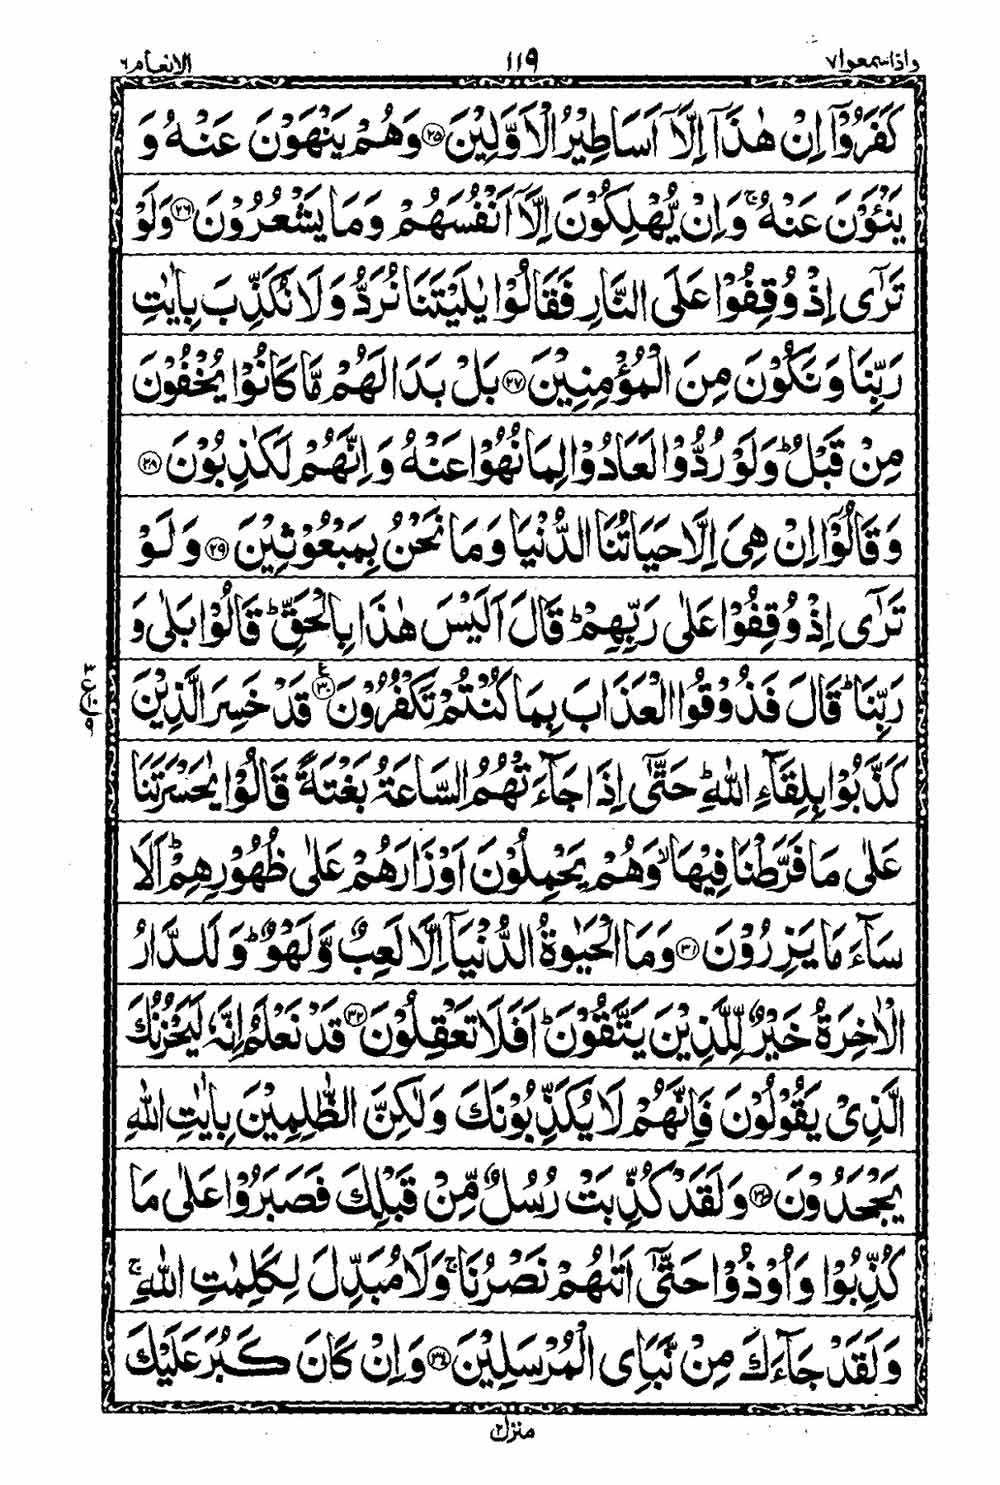 واذاسمعوا٧ ١١٩ الانعام٦
كَفَرُوْۤا اِنْ هٰذَاۤ اِلَّاۤ اَسَاطِيْرُ الْاَوَّلِيْنَ ۝٢٥ وَهُمْ يَنْهَوْنَ عَنْهُ وَ
يَنْـَٔوْنَ عَنْهُ ۚ وَاِنْ يُّهْلِكُوْنَ اِلَّاۤ اَنْفُسَهُمْ وَمَا يَشْعُرُوْنَ ۝٢٦ وَلَوْ
تَرٰٓى اِذْ وُقِفُوْا عَلَى النَّارِ فَقَالُوْا يٰلَيْتَنَا نُرَدُّ وَلَا نُكَذِّبَ بِاٰيٰتِ
رَبِّنَا وَنَكُوْنَ مِنَ الْمُؤْمِنِيْنَ ۝٢٧ بَلْ بَدَا لَهُمْ مَّا كَانُوْا يُخْفُوْنَ
مِنْ قَبْلُ ؕ وَلَوْ رُدُّوْا لَعَادُوْا لِمَا نُهُوْا عَنْهُ وَاِنَّهُمْ لَكٰذِبُوْنَ ۝٢٨
وَقَالُوْۤا اِنْ هِىَ اِلَّا حَيَاتُنَا الدُّنْيَا وَمَا نَحْنُ بِمَبْعُوْثِيْنَ ۝٢٩ وَلَوْ
تَرٰٓى اِذْ وُقِفُوْا عَلٰى رَبِّهِمْ ؕ قَالَ اَلَيْسَ هٰذَا بِالْحَقِّ ؕ قَالُوْا بَلٰى وَ
رَبِّنَا ؕ قَالَ فَذُوْقُوا الْعَذَابَ بِمَا كُنْتُمْ تَكْفُرُوْنَ ۝٣٠ قَدْ خَسِرَ الَّذِيْنَ
كَذَّبُوْا بِلِقَآءِ اللّٰهِ ؕ حَتّٰۤى اِذَا جَآءَتْهُمُ السَّاعَةُ بَغْتَةً قَالُوْا يٰحَسْرَتَنَا
عَلٰى مَا فَرَّطْنَا فِيْهَا ۙ وَهُمْ يَحْمِلُوْنَ اَوْزَارَهُمْ عَلٰى ظُهُوْرِهِمْ ؕ اَلَا
سَآءَ مَا يَزِرُوْنَ ۝٣١ وَمَا الْحَيٰوةُ الدُّنْيَاۤ اِلَّا لَعِبٌ وَّلَهْوٌ ؕ وَلَلدَّارُ
الْاٰخِرَةُ خَيْرٌ لِّلَّذِيْنَ يَتَّقُوْنَ ؕ اَفَلَا تَعْقِلُوْنَ ۝٣٢ قَدْ نَعْلَمُ اِنَّهٗ لَيَحْزُنُكَ
الَّذِىْ يَقُوْلُوْنَ فَاِنَّهُمْ لَا يُكَذِّبُوْنَكَ وَلٰكِنَّ الظّٰلِمِيْنَ بِاٰيٰتِ اللّٰهِ
يَجْحَدُوْنَ ۝٣٣ وَلَقَدْ كُذِّبَتْ رُسُلٌ مِّنْ قَبْلِكَ فَصَبَرُوْا عَلٰى مَا
كُذِّبُوْا وَاُوْذُوْا حَتّٰۤى اَتٰىهُمْ نَصْرُنَا ۚ وَلَا مُبَدِّلَ لِكَلِمٰتِ اللّٰهِ ۚ
وَلَقَدْ جَآءَكَ مِنْ نَّبَاِى الْمُرْسَلِيْنَ ۝٣٤ وَاِنْ كَانَ كَبُرَ عَلَيْكَ
منزل٢